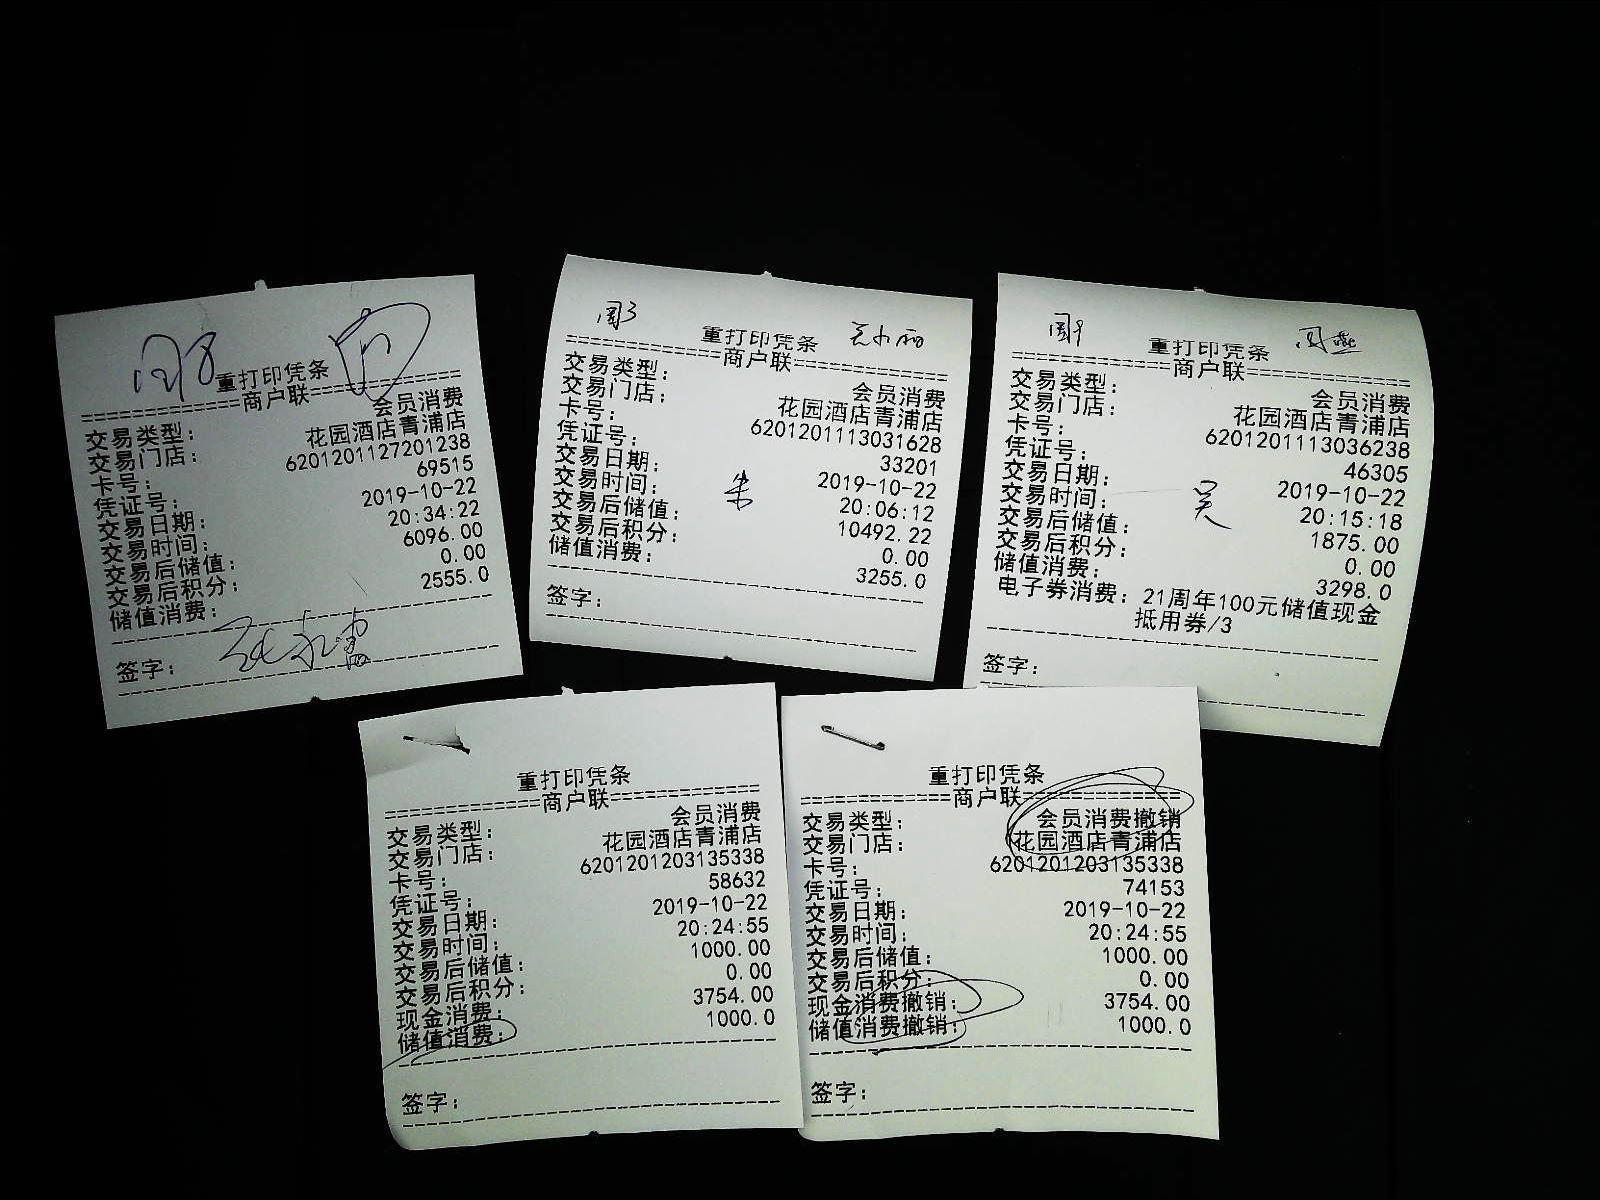 重打印凭条
============商户联============
交易类型: 会员消费
交易门店: 花园酒店青浦店
卡号: 6201201127201238
凭证号: 69515
交易日期: 2019-10-22
交易时间: 20:34:22
交易后储值: 6096.00
交易后积分: 0.00
储值消费: 2555.0
签字:
周3
重打印凭条
============商户联============
交易类型: 会员消费
交易门店: 花园酒店青浦店
卡号: 6201201113031628
凭证号: 33201
交易日期: 2019-10-22
交易时间: 20:06:12
交易后储值: 10492.22
交易后积分: 0.00
储值消费: 3255.0
朱
签字:
周燕
重打印凭条
============商户联============
交易类型: 会员消费
交易门店: 花园酒店青浦店
卡号: 6201201113036238
凭证号: 46305
交易日期: 2019-10-22
交易时间: 20:15:18
交易后储值: 1875.00
交易后积分: 0.00
储值消费: 3298.0
电子券消费: 21周年100元储值现金
抵用券/3
吴
签字:
重打印凭条
============商户联============
交易类型: 会员消费
交易门店: 花园酒店青浦店
卡号: 6201201203135338
凭证号: 58632
交易日期: 2019-10-22
交易时间: 20:24:55
交易后储值: 1000.00
交易后积分: 0.00
现金消费: 3754.00
储值消费: 1000.0
签字:
重打印凭条
============商户联============
交易类型: 会员消费撤销
交易门店: 花园酒店青浦店
卡号: 6201201203135338
凭证号: 74153
交易日期: 2019-10-22
交易时间: 20:24:55
交易后储值: 1000.00
交易后积分: 0.00
现金消费撤销: 3754.00
储值消费撤销: 1000.0
签字: